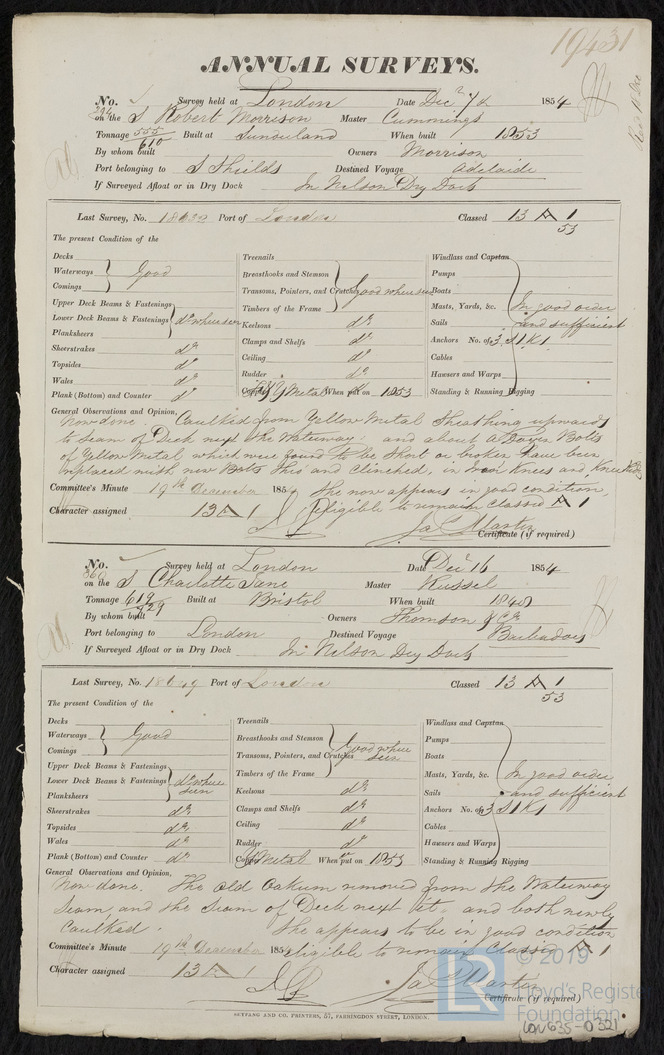 19431
ANNUAL SURVEYS.
No. 294 Survey held at London Date Dec 1854
on the S Robert Morrison Master Cummings
Tonnage 555/610 Built at Sunderland When built 1853
By whom built Owners Morrison
Port belonging to S Shields Destined Voyage Adelaide
If Surveyed Afloat or in Dry Dock In Nelson Dry Dock
Last Survey, No. Port of London Classed 13 A 1
53
The present Condition of the
Decks
Waterways
Comings
Good
Upper Deck Beams & Fastenings
Lower Deck Beams & Fastenings
Planksheers
do where seen
Sheerstrakes do
Topsides do
Wales do
Plank (Bottom) and Counter do
Treenails
Breasthooks and Stemson
Transoms, Pointers, and Crutches
Timbers of the Frame
Good where seen
Keelsons do
Clamps and Shelfs do
Ceiling do
Rudder do
Copper Y Metal When put on 1853
Windlass and Capstan
Pumps
Boats
Masts, Yards, &c.
Sails
In good order and sufficient
Anchors No. of 3 S 1 K 1
Cables
Hawsers and Warps
Standing & Running Rigging
General Observations and Opinion,
Now done. Caulked from Yellow Metal Sheathing upwards
to Seam of Deck next the Waterway and about a Dozen Bolts
of Yellow Metal which were found to be Short or broken have been
replaced with new Bolts and Clinched, in Iron Knees and Knee
Committee's Minute 19th December 1854 She now appears in good condition,
Character assigned 13 A 1 Eligible to remain Classed A 1
Jas Martin
Certificate (if required)
No. Survey held at London Date Dec 16 1854
on the S Charlotte Jane Master Russel
Tonnage 619/729 Built at Bristol When built 1848
By whom built Owners Thomson & Co
Port belonging to London Destined Voyage Barbadoes
If Surveyed Afloat or in Dry Dock In Nelson Dry Dock
Last Survey, No. Port of London Classed 13 A 1
53
The present Condition of the
Decks
Waterways
Comings
Good
Upper Deck Beams & Fastenings
Lower Deck Beams & Fastenings
Planksheers
do where seen
Sheerstrakes do
Topsides do
Wales do
Plank (Bottom) and Counter do
Treenails
Breasthooks and Stemson
Transoms, Pointers, and Crutches
Timbers of the Frame
Good where seen
Keelsons do
Clamps and Shelfs do
Ceiling do
Rudder do
Copper Y Metal When put on 1853
Windlass and Capstan
Pumps
Boats
Masts, Yards, &c.
Sails
In good order and sufficient
Anchors No. of 3 S 1 K 1
Cables
Hawsers and Warps
Standing & Running Rigging
General Observations and Opinion,
Now done. The old Oakum removed from the Waterway
Seam, and the Seam of Deck next it, and both newly
Caulked. She appears to be in good condition
Committee's Minute 19th December 1854 eligible to remain Classed A 1
Character assigned 13 A 1
Jas Martin
Certificate (if required)
SEYFANG AND CO. PRINTERS, 57, FARRINGDON STREET, LONDON.
© 2019
LR
Lloyd's Register
Foundation
LON635-0321